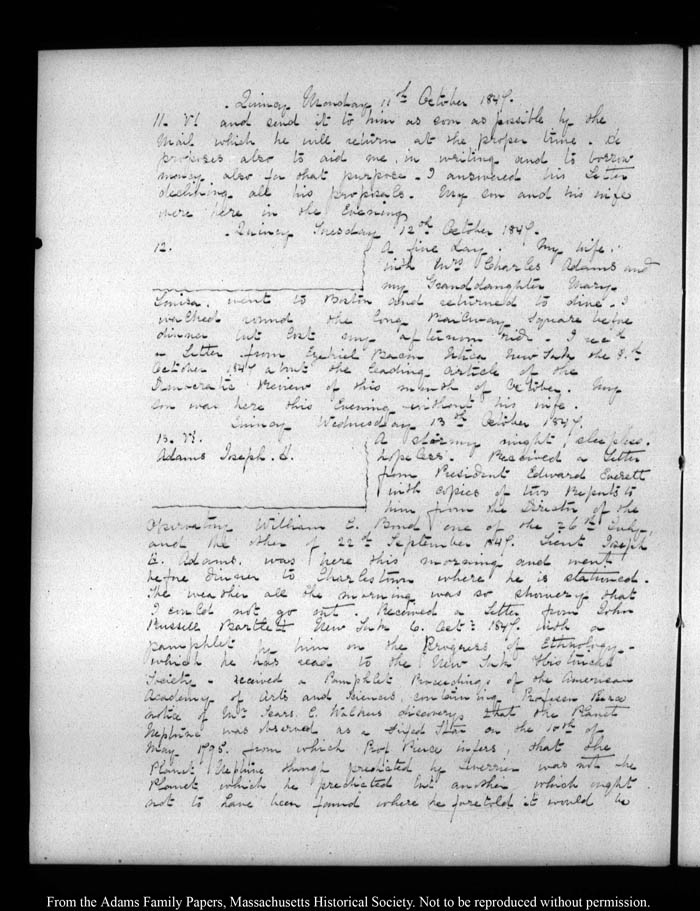 Quincy Monday 11th October 1847.
11. VI. and send it to him as soon as possible by the
Mail which he will return at the proper time. He
proposes also to aid me in writing and to borrow
money also for that purpose. I answered his Letter
declining all his proposals. My Son and his wife
were here in the Evening
Quincy Tuesday 12th October 1847.
12. A fine day. My wife,
with Mrs Charles Adams and
my Granddaughter Mary
Louisa, went to Boston and returned to dine. I
walked round the long Railway Square before
dinner but lost my afternoon ride. I recd
a Letter from Ezekiel Bacon Utica New York the 8th
October 1847 about the leading article of the
Democratic Review of this month of October. My
Son was here this Evening without his wife.
Quincy Wednesday 13th October 1847.
13. VI. A stormy night sleepless.
Adams Joseph. H. hopeless. Received a Letter
from President Edward Everett
with copies of two Reports to
him from the Director of the
Observatory William C. Bond one of the 26th July
and the other of 22th September 1847. Lieut Joseph
Adams. was here this morning and went
before dinner to Charlestown where he is stationed.
The weather all the morning was so showery that
I could not go out. Received a Letter from John
Russell Bartlett New York 6. Oct: 1847 with a
pamphlet by him on the Progress of Ethnology
which he has read to the New York Historical
Society. received a Pamphlet Proceedings of the American
Academy of Arts and Sciences, containing Professor
notice of Mr Sears. C. Walkers discovery that the Planet
Neptune was observed as a fixed Star on the 10th of
May 1795. from which Prof Pierce infers, that the
Planet Neptune though predicted by Leverrier was not the
Planet which he predicted but another which ought
not to have been found where he foretold it would be
From the Adams Family Papers, Massachusetts Historical Society. Not to be reproduced without permission.